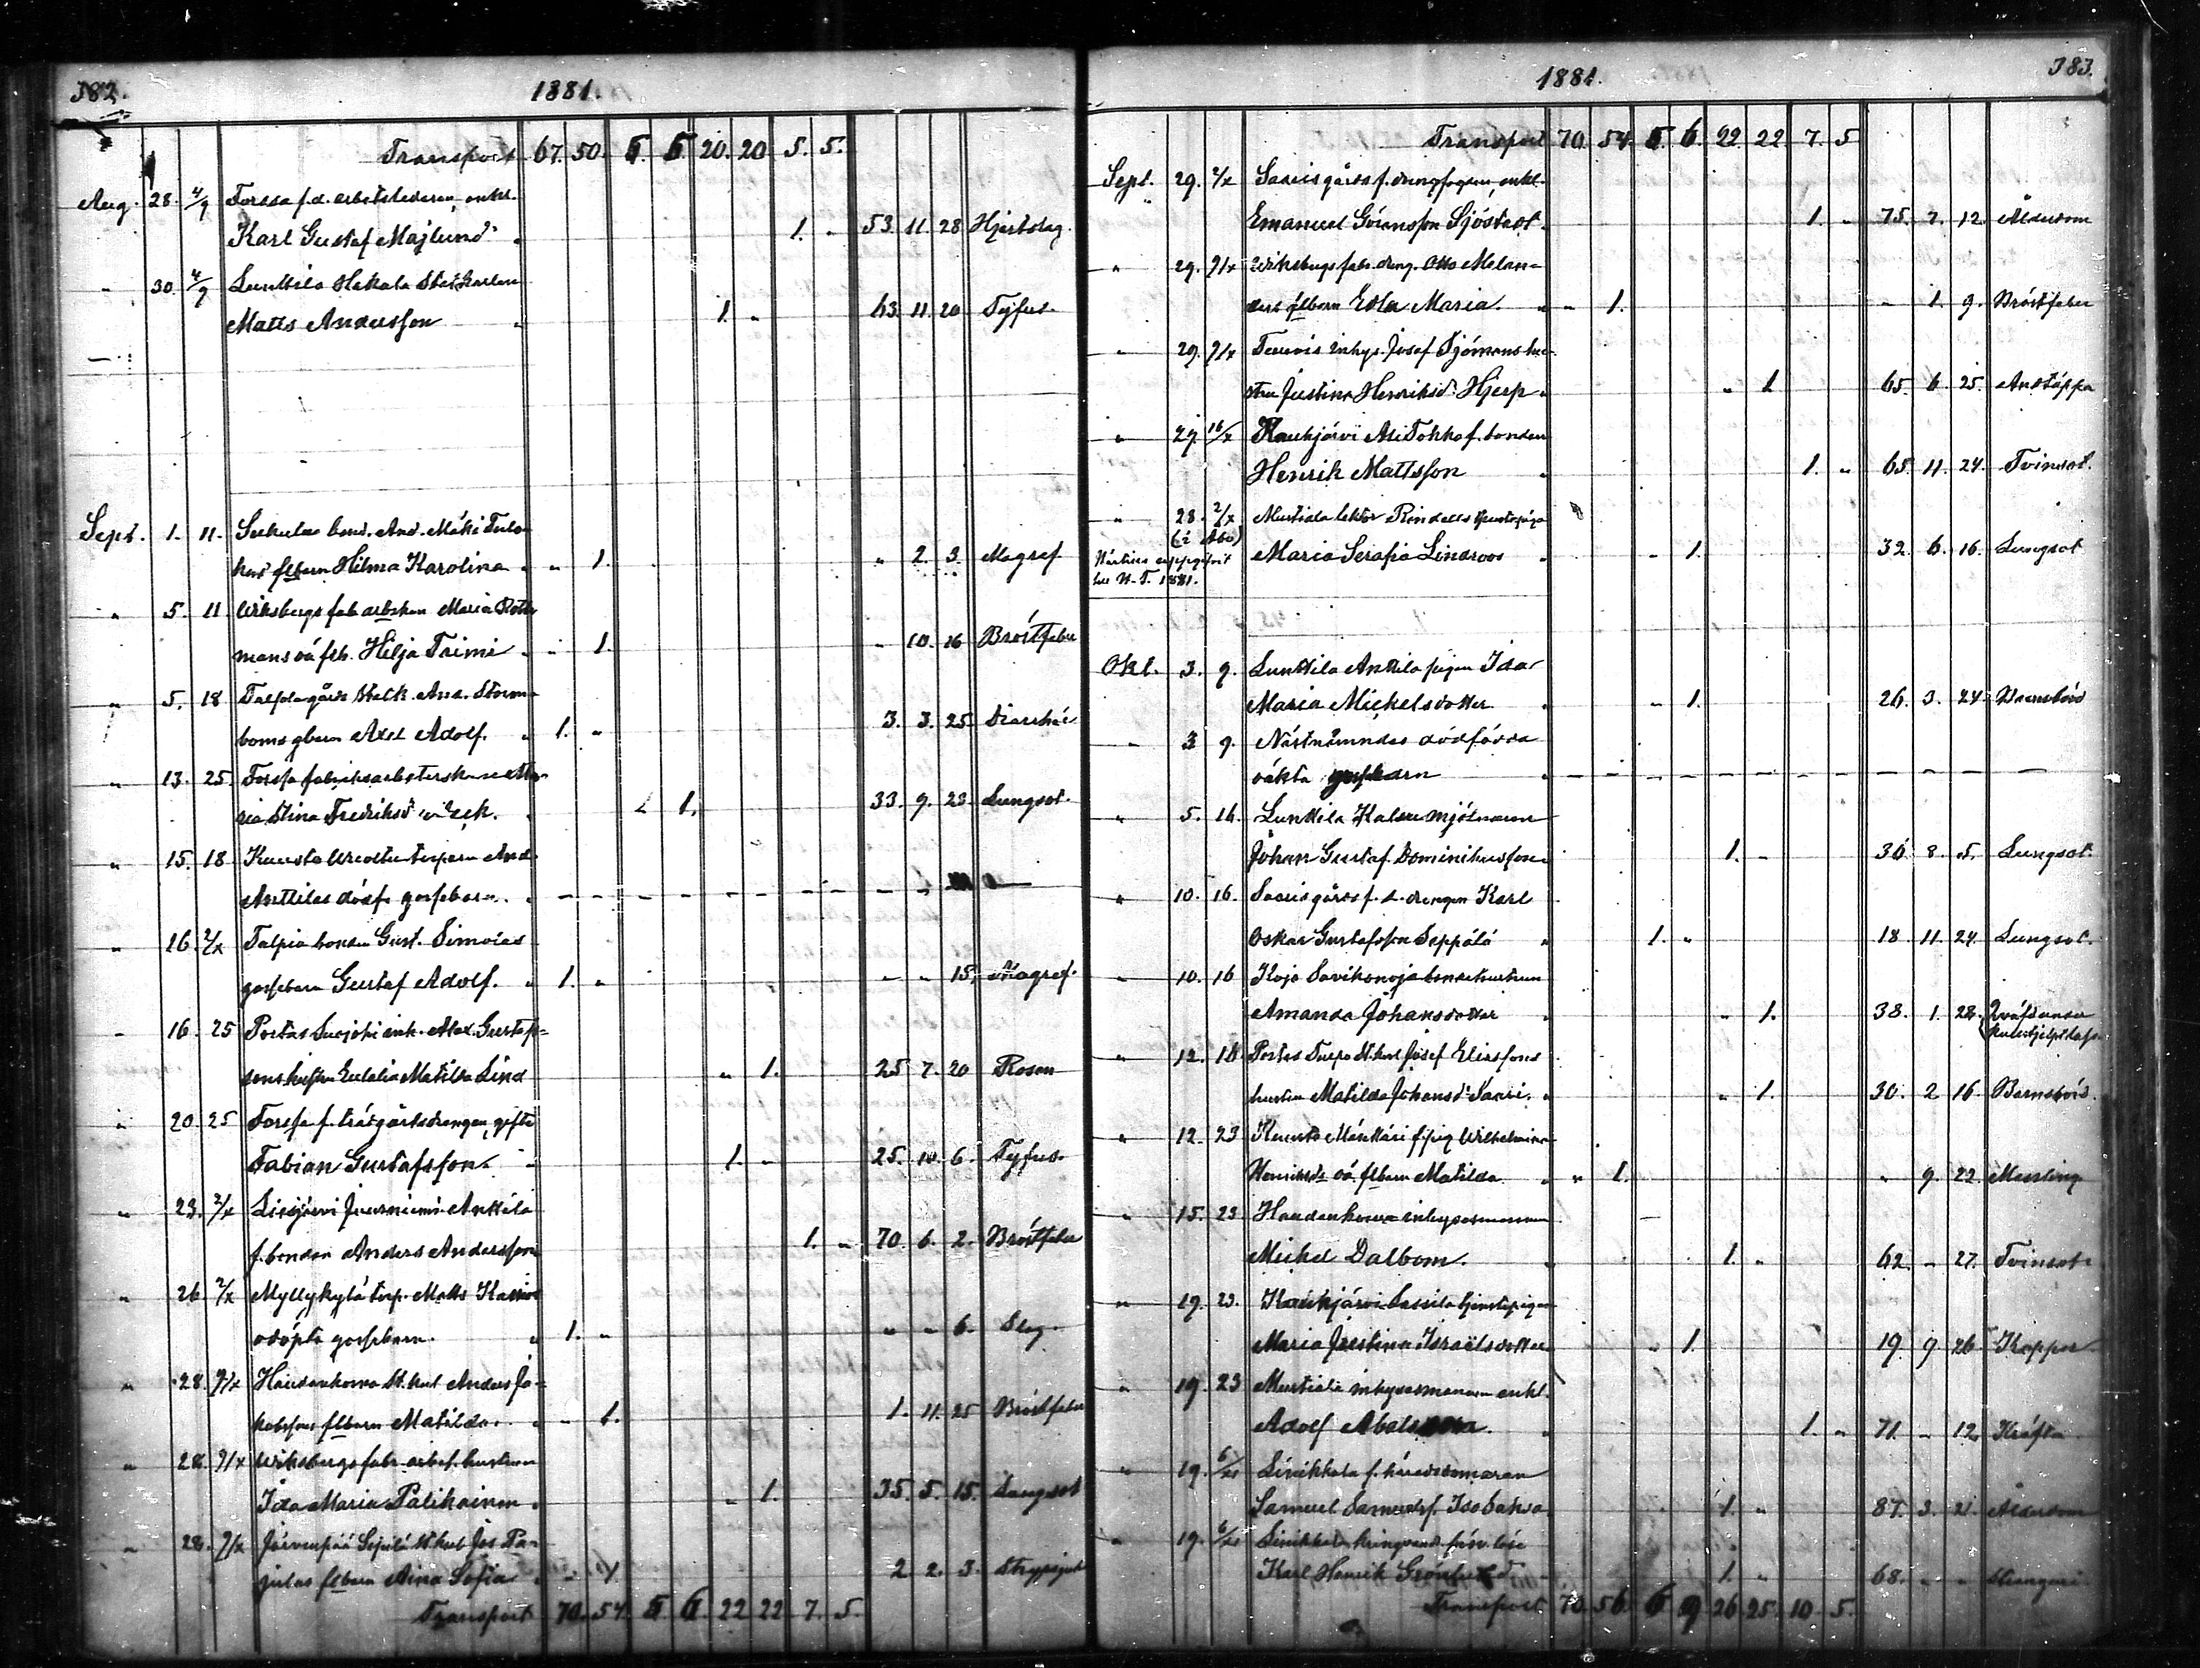 382.
1881.
Transport 67. 50. 5. 5. 20. 20 5. 5.
Aug. 28. 4/9 Forssa f.d. arbetsledaren, enkl.
Karl Gustaf Majlund " 1. " 53. 11. 28 Hjertslag.
" 30. 4/9 Lunkkila Hakala
Matts Andersson " 1. " 63. 11. 20 Tyfus.
Sept. 1. 11. Sukula bond. And. Mäki Tulo-
flbarn Hilma Karolina " " 1. " 2. 3. Magref
" 5. 11. Wiksbergs fab. arbskan Maria
mans oä flb. Hilja Faimi " " 1. " 10. 16 Bröstfeber
" 5. 18 gårds And. Storm-
boms gbarn Axel Adolf. " 1. " 3. 3. 25. Diarrhé
" 13. 25. Forssa fabriksarbeterskan
Stina Fredriksdr 1. 33. 9. 23 Lungsot.
" 15. 18 torparn And.
Anttilas dödf. gossebarn.
" 16. 2/x Talpia bonden Gust. Simolas
gossebarn Gustaf Adolf. " 1. " " " 15. Magref.
" 16. 25 Portas Suojoki inh. Alex. Gustafs-
sons hustru Eulalia Matilda Lind " 1. 25 7. 20 Rosen
" 20. 25 Forssa f. trädgårdsdrengen, gifte
Fabian Gustafsson. " 1. " 25. 10. 6. Tyfus.
" 23. 2/x Liesjärvi Anttila
f. bonden Anders Andersson 1. " 70. 6. 2. Bröstfeber
" 26. 2/x Myllykylä torp. Matts
odöpta gossebarn. " 1. " " " 6. Slag.
" 28. 9/x Haudankorva St.karl Anders Ja-
kobssons flbarn Matilda. " " 1. 1. 11. 25 Bröstfeber
" 28. 9/x Wiksbergs fabr. arbet. hustrun
Ida Maria Palikainen " 1. 35. 5. 15. Lungsot
" 28. 9/x Järvenpää St.karl Jos.
flbarn Aina Sofia " " 1. 2 2. 3. Strypsjuk
Transport 70. 54. 5 6. 22 22. 7. 5.
383.
1881.
Transport 70. 54. 5. 6. 22. 22 7. 5
Sept. 29. 2/x Saaris gårds f. drengfogden, enkl.
Emanuel Göransson Sjöstedt. 1. " 75. 7. 12. Ålderdom
" 29. 9/x Wiksbergs fabr. dreng. Otto Melan-
ders flbarn Edla Maria. " " 1. " 1. 9. Bröstfeber
" 29. 9/x inhys. Josef Sjömans hu-
stru Justina Henriksdr Hjerp. " 1 65. 6. 25. Andtäppa
" 27 16/x Kaukjärvi Ali Tokka f. bonden
Henrik Mattsson " 1. " 65. 11. 24. Tvinsot.
" 28. 2/x Mustiala lektor Rindells
(i Åbo) Maria Serafia Lindroos " " 1. 32. 6. 16. Lungsot
1881.
Okt. 3. 9. Lunkkila Anttila pigan Ida
Maria Mickelsdotter " " 1. 26. 3. 24. Barnsbörd
" 3 9. Nästnämndes dödfödda
oäkta gossebarn
" 5. 16. Lunkkila mjölnaren
Johan Gustaf Dominikusson 1. " 36. 8. 5. Lungsot.
" 10. 16. Saaris gårds f.d. drengen Karl
Oskar Gustafsson Seppälä " 1. " 18. 11. 24. Lungsot.
" 10. 16 Kojo Savikonoja bondehustrun
Amanda Johansdotter " " 1. 38. 1. 28.
" 12. 16 Portas St.karl Josef Eliassons
hustru Matilda Johansdr Saari. " " 1. 30. 2 16. Barnsbörd.
" 12. 23 f. pig. Wilhelmina
Henriksdr oä. flbarn Matilda " " 1. " 9. 22. Messling
" 15. 23 Haudankorva inhysesmannen
Mickel Dalbom. " 1. " 62. " 27. Tvinsot
" 19. 23. Kaukjärvi tjenstepigan
Maria Justina Israelsdotter " 1. 19. 9 26 Koppor
" 19. 23 Mustiala inhysesmannen enkl.
Adolf " 1. " 71. " 12. Kräfta
" 19. 6/xi f. häradsdomaren
Samuel Samuelsf. 1. " 87. 3. 21. Ålderdom
" 19. 6/xi
Karl Henrik Grönlund 1. " 68. " "
Transport 70. 56. 6 9 26 25. 10 5.